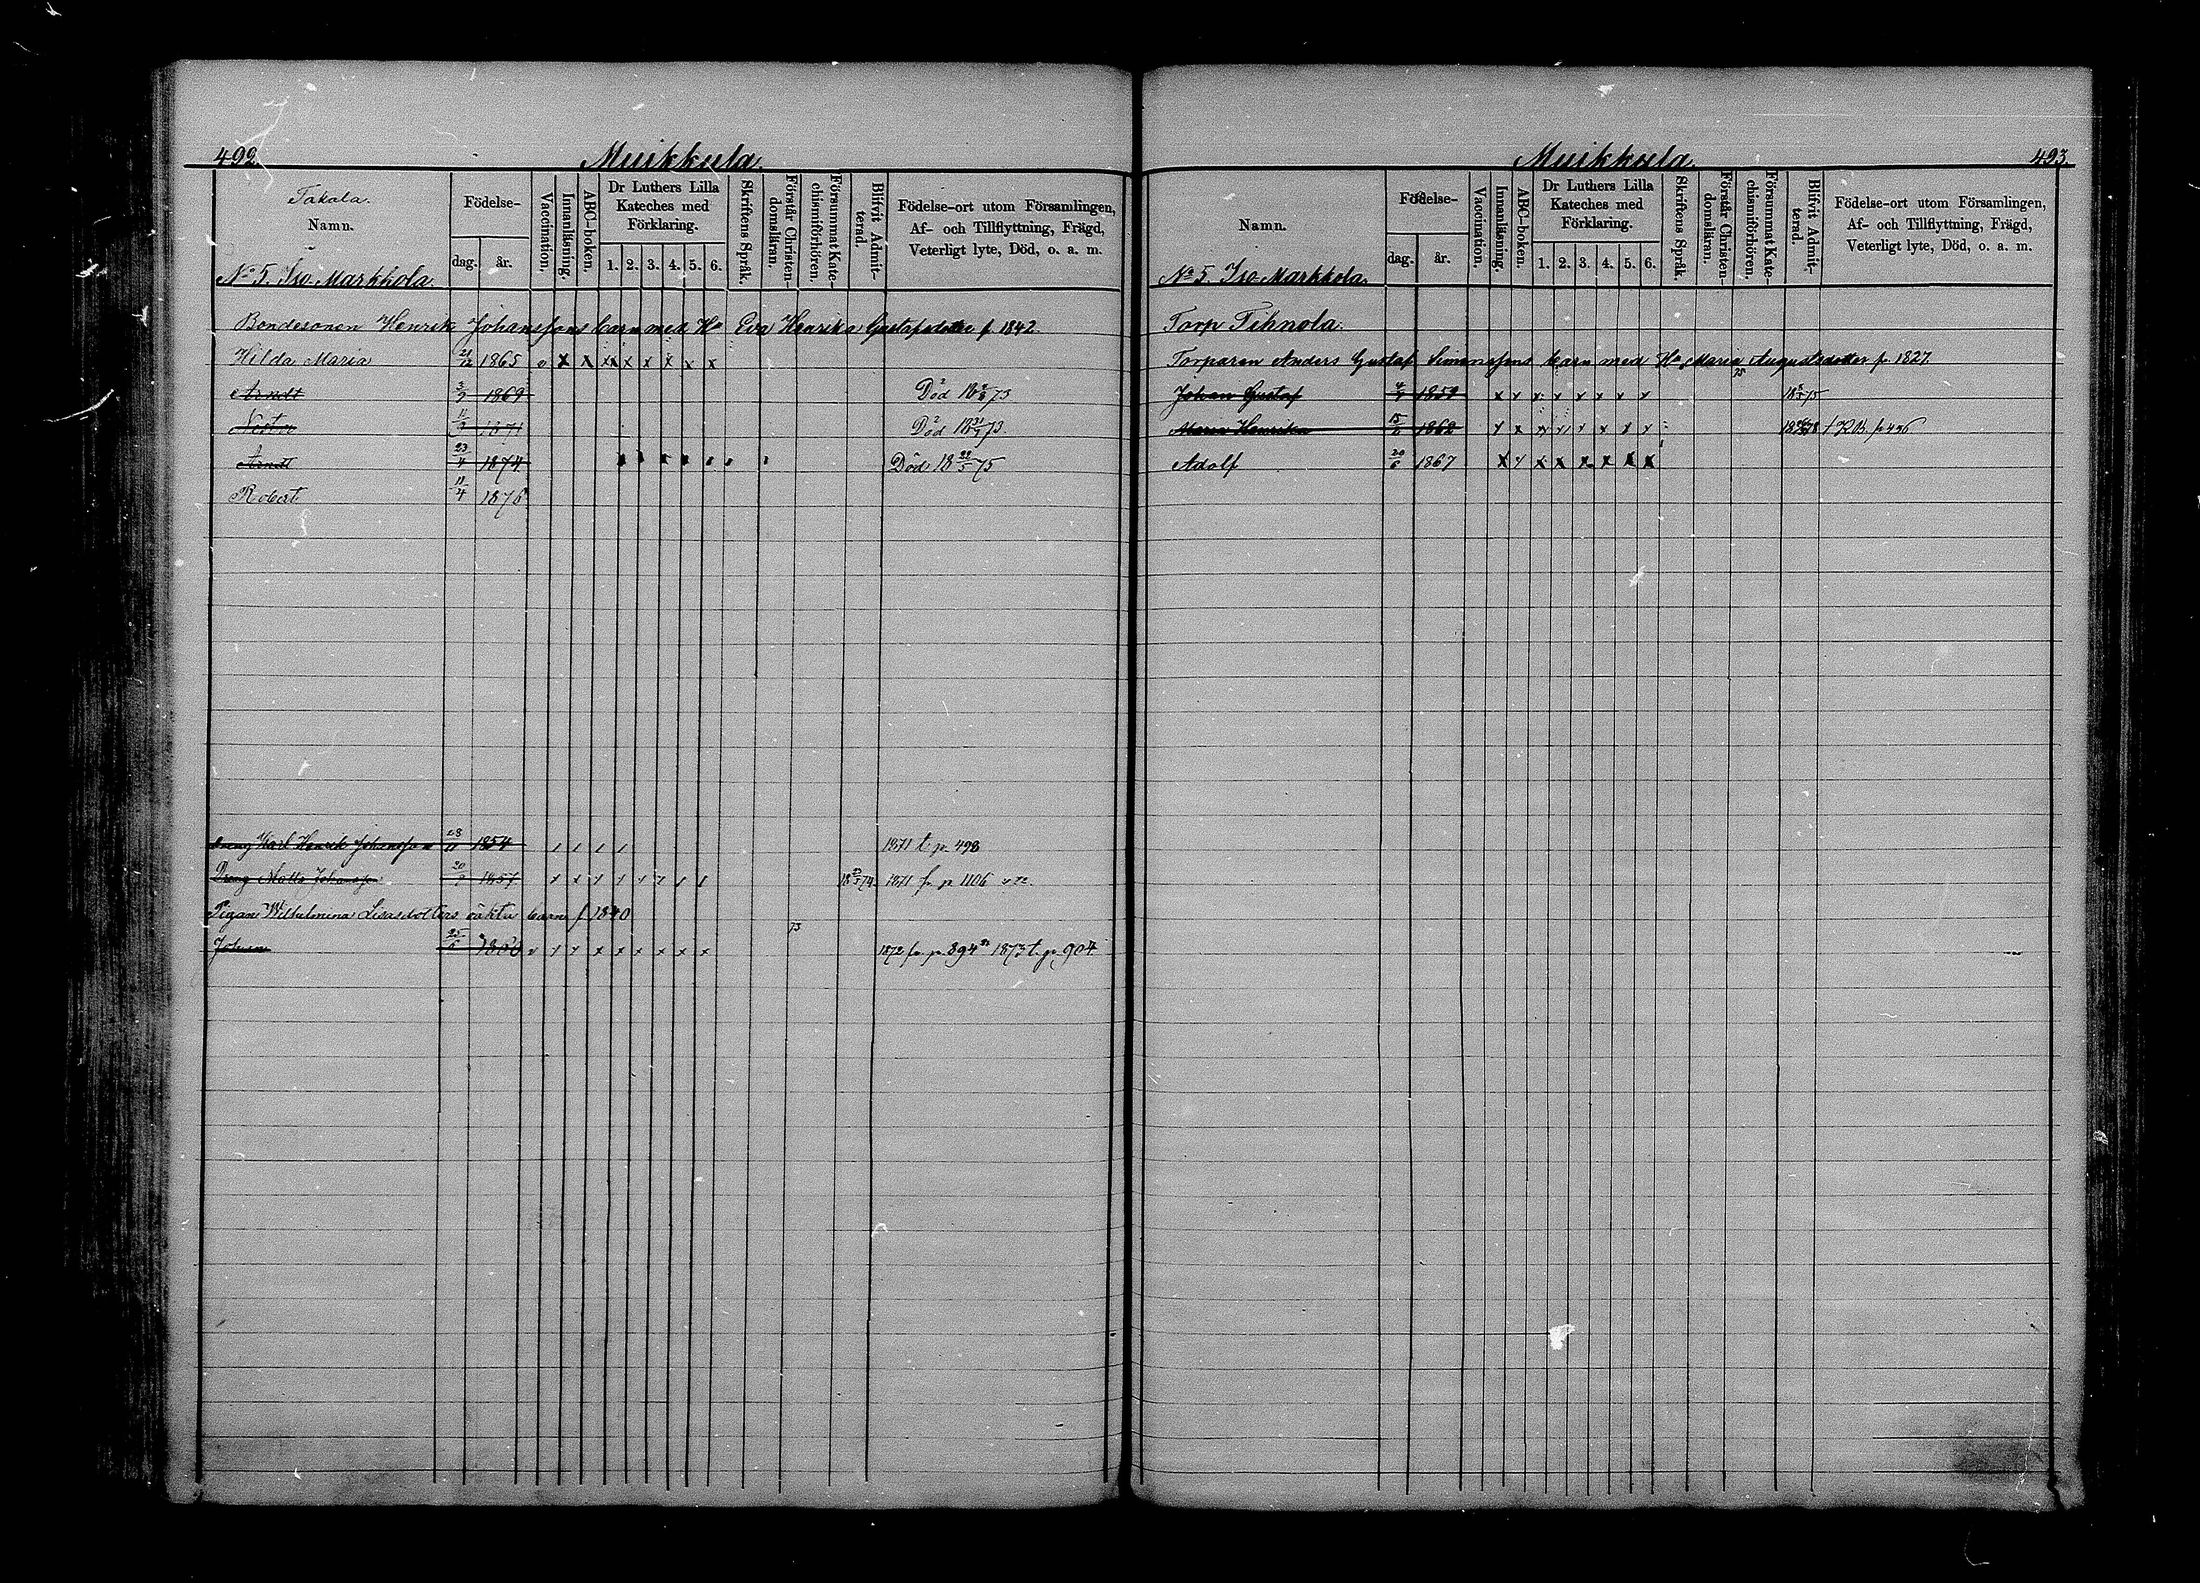 492. Muikkula.
Takala.
Namn. Födelse- dag. år. Vaccination. Innanläsning. ABC-boken. Dr Luthers Lilla Kateches med Förklaring. 1. 2. 3. 4. 5. 6. Skriftens Språk. Förstår Christendomsläran. Försummat Katechismiförhören. Blifvit Admitterad. Födelse-ort utom Församlingen, Af- och Tillflyttning, Frägd, Veterligt lyte, Död, o. a. m.
No 5. Iso-Markkola.
Bondesonen Henrik Johanssons barn med Ha Eva Henrika Gustafsdotter f. 1842.
Hilda Maria 21/12 1865 o x x x x x x x x
Arndt 3/3 1869 Död 73
Nestor 1871 Död 73.
Arndt 23/4 1874 Död 18 22/5 75
Robert 11/4 1876
Dreng Karl Henrik Johansson 1854 1871 t. p. 498
Dreng Matts Johansson 20/9 1857 1871 fr. p 1106
Pigan Wilhelmina Lisasdotters oäkta barn f 1840
Johan 25/6 73 1872 fr. p. 894 1873 t. p. 904
Muikkula. 493.
Namn. Födelse- dag. år. Vaccination. Innanläsning. ABC-boken. Dr Luthers Lilla Kateches med Förklaring. 1. 2. 3. 4. 5. 6. Skriftens Språk. Förstår Christendomsläran. Försummat Katechismiförhören. Blifvit Admitterad. Födelse-ort utom Församlingen, Af- och Tillflyttning, Frägd, Veterligt lyte, Död, o. a. m.
No 5. Iso-Markkola.
Torp Tihnola.
Torparen Anders Gustaf Simonssons barn med Ha Maria Augustsdotter f. 1827.
Johan Gustaf 1859 x x x x x x x x 75
Maria Henrika 15/6 1862 x x x x x x x x p 456
Adolf 20/6 1867 x x x x x x x x